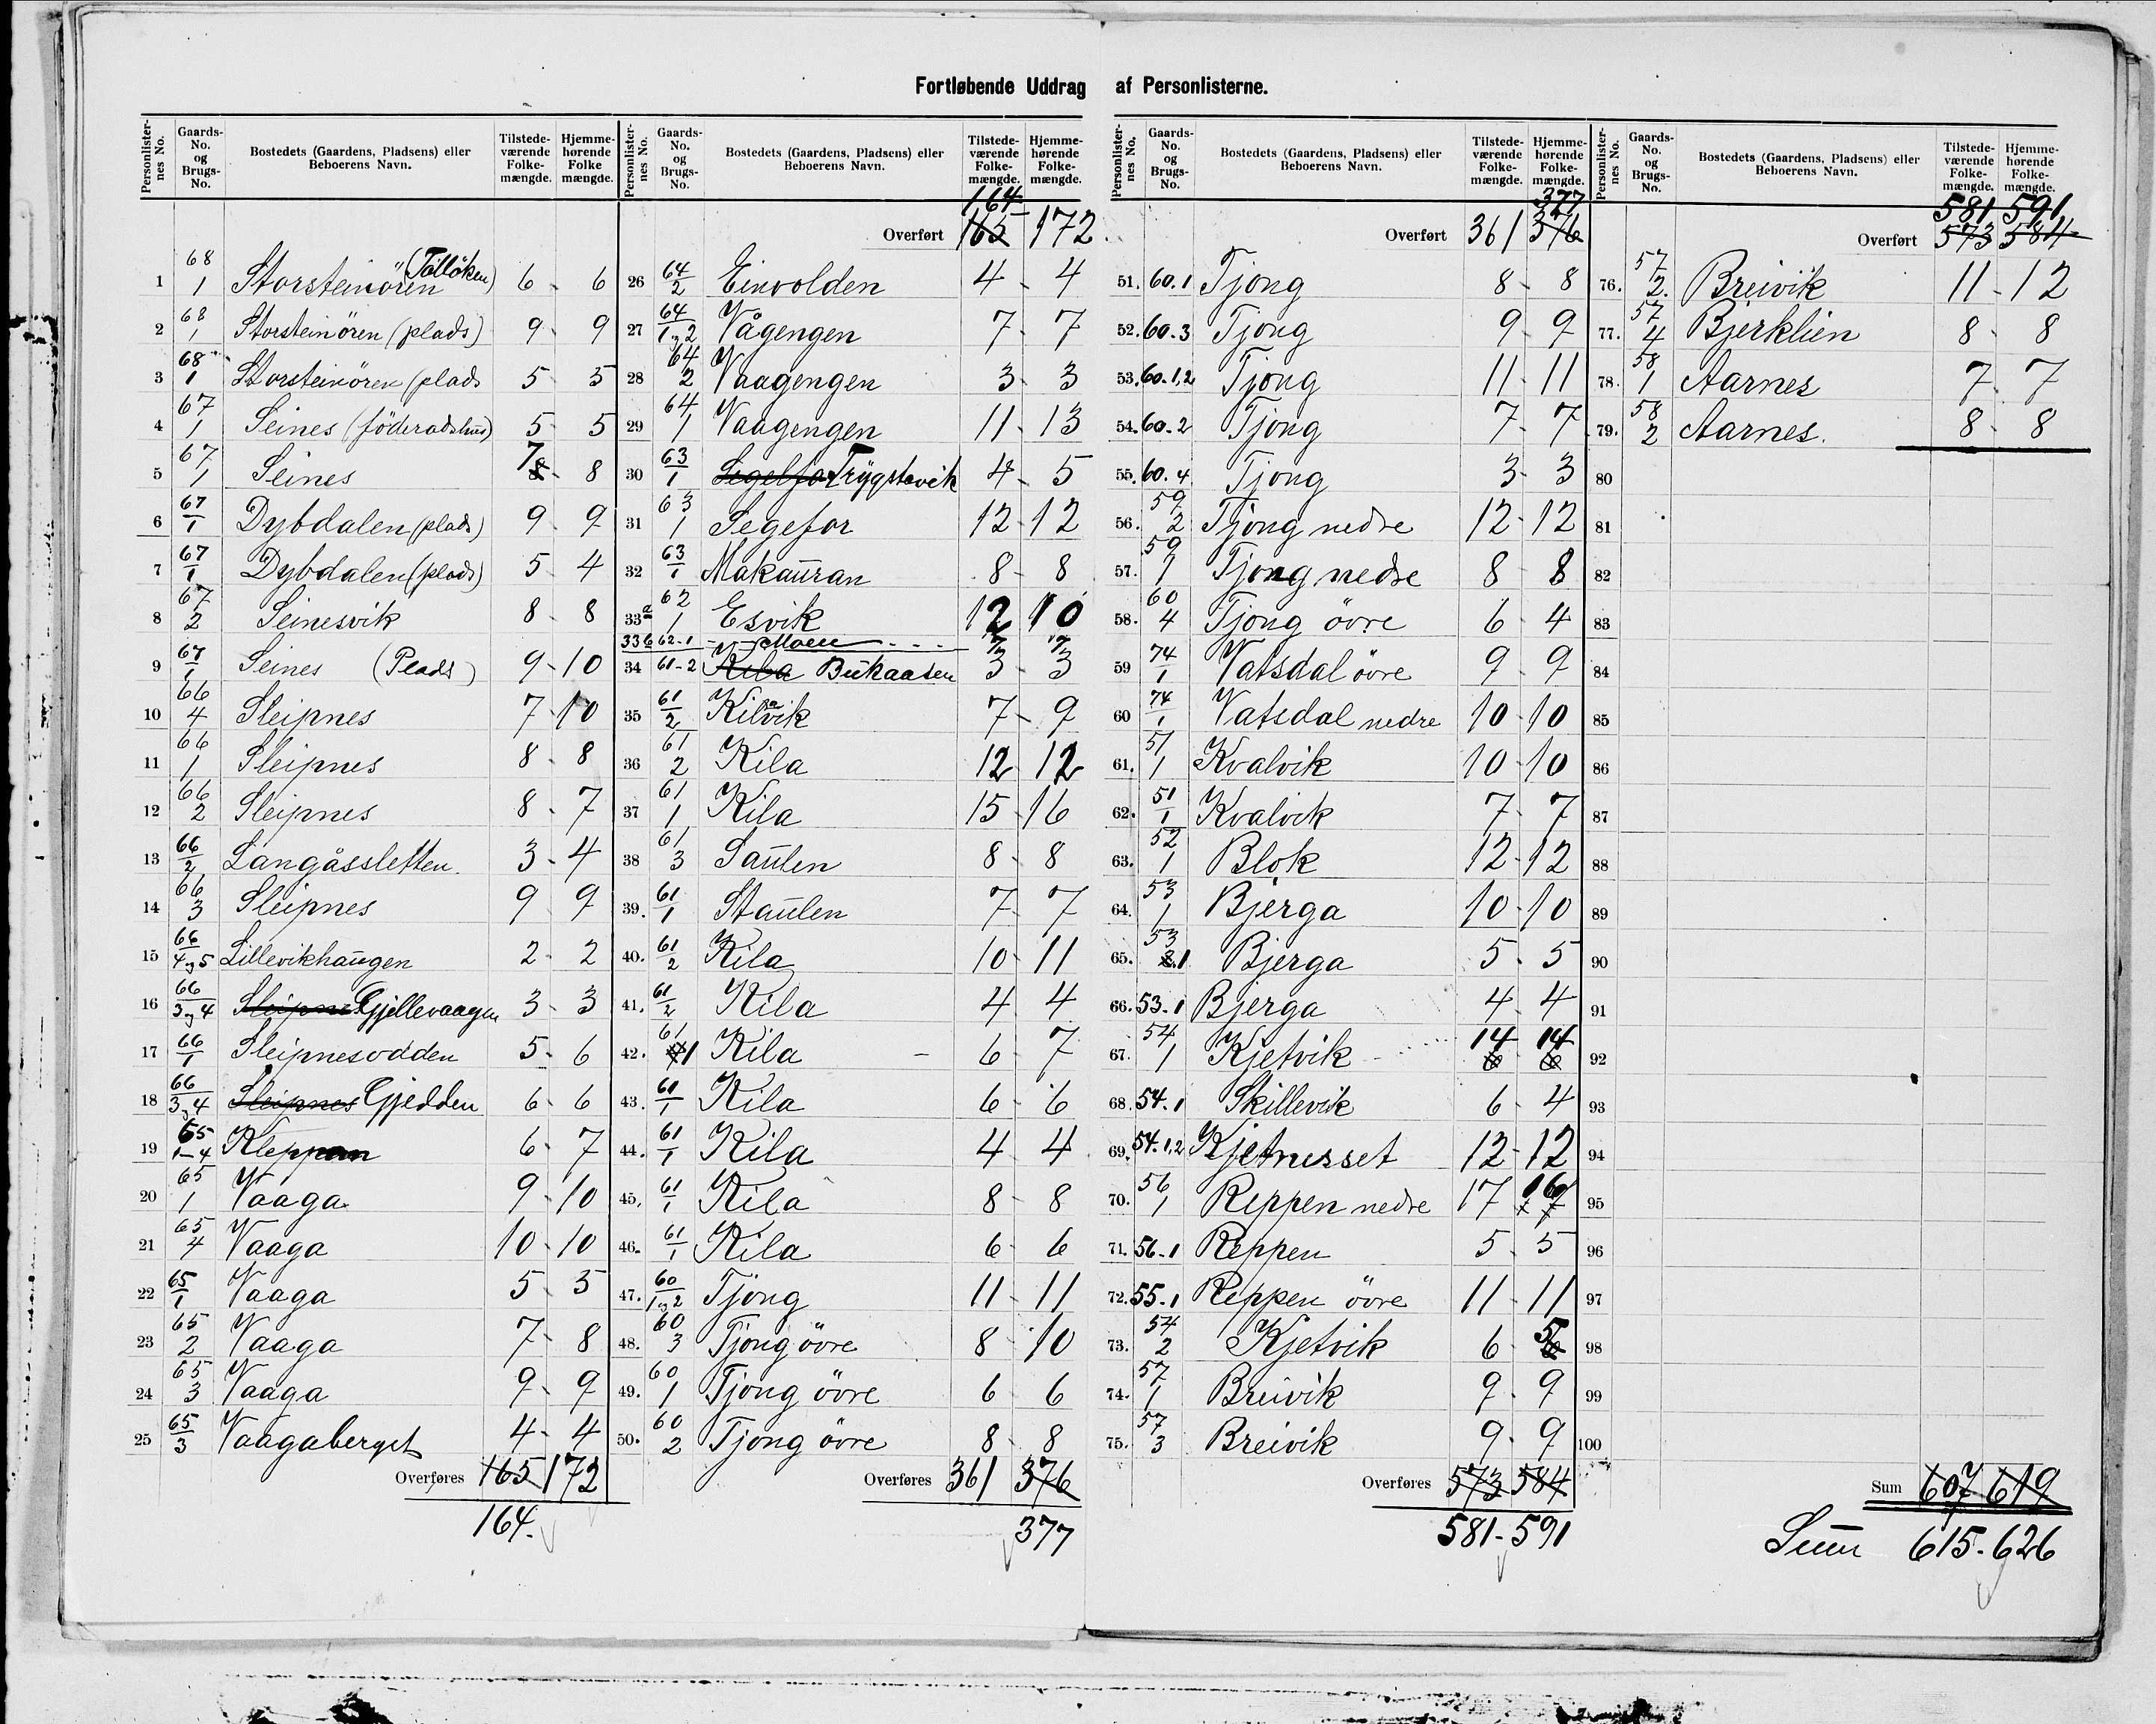 Fortløbende Uddrag af Personlisterne.
Personlisternes No. Gaards-No. og Brugs-No. Bostedets (Gaardens, Pladsens) eller Beboerens Navn. Tilstedeværende Folkemængde. Hjemmehørende Folkemængde.
1 68/1 Storsteinören (Tollöken) 6 - 6
2 68/1 Storsteinören (plads) 9 - 9
3 68/1 Storsteinören (plads 5 - 5
4 67/1 Seines (föderadshus) 5 - 5
5 67/1 Seines 8 7 - 8
6 67/1 Dybdalen (plads) 9 - 9
7 67/1 Dybdalen (plads) 5 - 4
8 67/2 Seinesvik 8 - 8
9 67/1 Seines (Plads) 9 - 10
10 66/4 Sleipnes 7 - 10
11 66/1 Sleipnes 8 - 8
12 66/2 Sleipnes 8 - 7
13 66/2 Langåssletten. 3 - 4
14 66/3 Sleipnes 9 - 9
15 66/4 og 5 Lillevikhaugen 2 - 2
16 66/3 og 4 Sleipnes Gjellevaagen 3 - 3
17 66/1 Sleipnesodden 5 - 6
18 66/3 og 4 Sleipnes Gjedden 6 - 6
19 65/1-4 Kleppan 6 - 7
20 65/1 Vaaga 9 - 10
21 65/4 Vaaga 10 - 10
22 65/1 Vaaga 5 - 5
23 65/2 Vaaga 7 - 8
24 65/3 Vaaga 9 - 9
25 65/3 Vaagaberget 4 - 4
Overføres 165 172
164.
Personlisternes No. Gaards-No. og Brugs-No. Bostedets (Gaardens, Pladsens) eller Beboerens Navn. Tilstedeværende Folkemængde. Hjemmehørende Folkemængde.
164
Overført 165 172
26 64/2 Einvolden 4 - 4
27 64/1 og 2 Vågengen 7 - 7
28 64/2 Vaagengen 3 - 3
29 64/1 Vaagengen 11 - 13
30 63/1 Segelfor Trygstavik 4 - 5
31 63/1 Segefor 12 - 12
32 63/1 Makauran 8 - 8
33a 62/1 Esvik 12 10
33b 62-1 - Moen - - - - 7 7
34 61-2 Kila Bukaasen 3 - 3
35 61/2 Kilavik 7 - 9
36 61/2 Kila 12 - 12
37 61/1 Kila 15 - 16
38 61/3 Saulen 8 - 8
39. 61/1 Staulen 7 - 7
40. 61/2 Kila 10 - 11
41. 61/2 Kila 4 - 4
42. 61/1 Kila - 6 - 7
43. 61/1 Kila 6 - 6
44. 61/1 Kila 4 - 4
45. 61/1 Kila 8 - 8
46. 61/1 Kila 6 - 6
47. 60/1 og 2 Tjong 11 - 11
48. 60/3 Tjong övre 8 - 10
49. 60/1 Tjong övre 6 - 6
50. 60/2 Tjong övre 8 - 8
Overføres 361 376
377
Personlisternes No. Gaards-No. og Brugs-No. Bostedets (Gaardens, Pladsens) eller Beboerens Navn. Tilstedeværende Folkemængde. Hjemmehørende Folkemængde.
377
Overført 361 376
51. 60.1 Tjong 8 - 8
52. 60.3 Tjong 9 - 9
53. 60-1,2 Tjong 11 - 11
54. 60-2 Tjong 7 - 7
55. 60.4 Tjong 3 - 3
56. 59/2 Tjong nedre 12 - 12
57. 59/1 Tjong nedre 8 - 8
58. 60/4 Tjong övre 6 - 4
59 74/1 Vatsdal övre 9 - 9
60 74/1 Vatsdal nedre 10 - 10
61. 51/1 Kvalvik 10 - 10
62. 51/1 Kvalvik 7 - 7
63. 52/1 Blok 12 - 12
64. 53/1 Bjerga 10 - 10
65. 53/1 Bjerga 5 - 5
66. 53-1 Bjerga 4 - 4
67. 54/1 Kjetvik 6 14 6 14
68. 54.1 Skillevik 6 - 4
69. 54.1,2 Kjetnesset 12 - 12
70. 56/1 Reppen nedre 17 16
71. 56-1 Reppen 5 - 5
72. 55-1 Reppen övre 11 - 11
73. 54/2 Kjetvik 6 - 5
74. 57/1 Breivik 9 - 9
75. 57/3 Breivik 9 - 9
Overføres 573 584
581 - 591
Personlisternes No. Gaards-No. og Brugs-No. Bostedets (Gaardens, Pladsens) eller Beboerens Navn. Tilstedeværende Folkemængde. Hjemmehørende Folkemængde.
581 591
Overført 573 584
76. 57/2. Breivik 11 - 12
77. 57/4 Bjerklien 8 - 8
78. 58/1 Aarnes 7 - 7
79. 58/2 Aarnes. 8 - 8
80
81
82
83
84
85
86
87
88
89
90
91
92
93
94
95
96
97
98
99
100
Sum 607 619
Sum 615 - 626